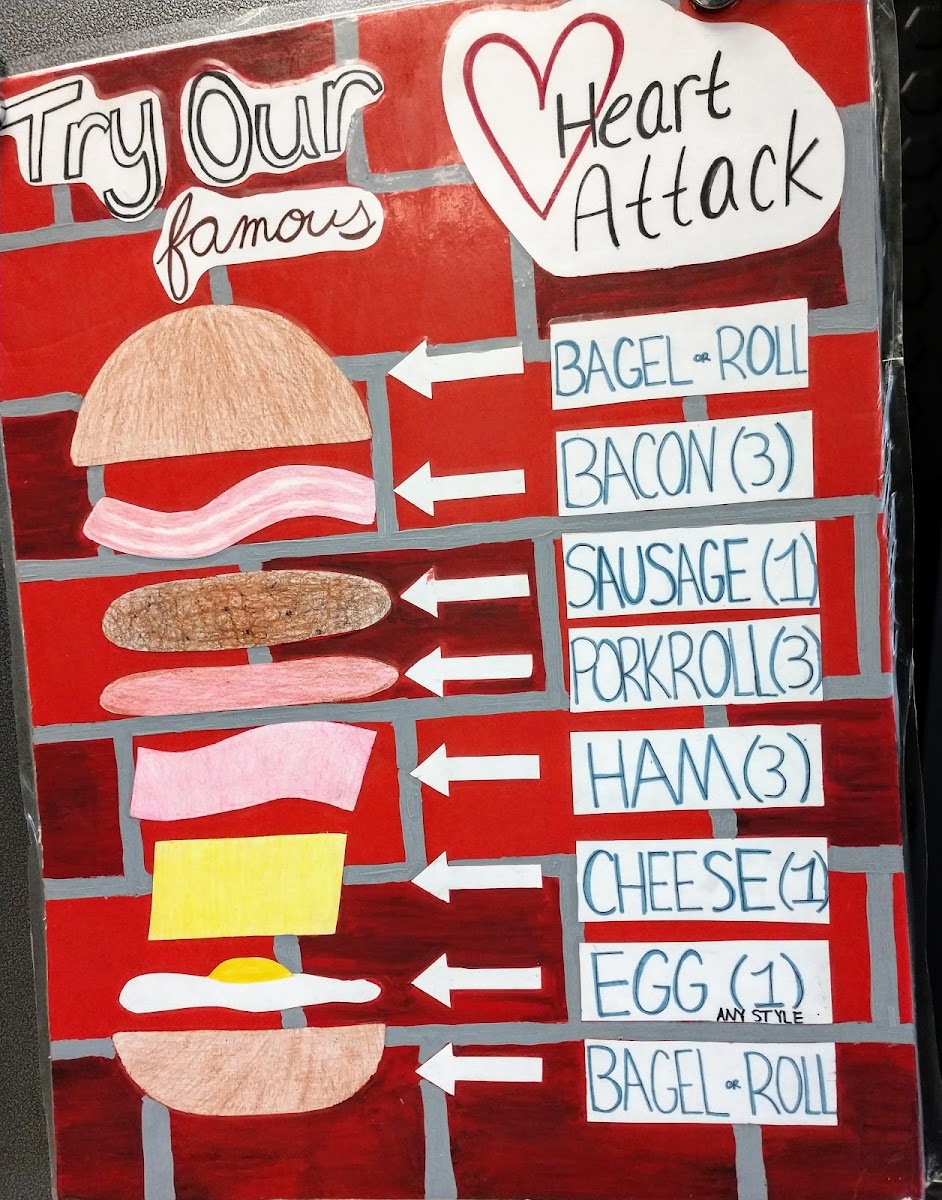 Try Our
famous
Heart
Attack
BAGEL OR ROLL
BACON (3)
SAUSAGE (1)
PORKROLL (3)
HAM (3)
CHEESE (1)
EGG (1)
ANY STYLE
BAGEL OR ROLL